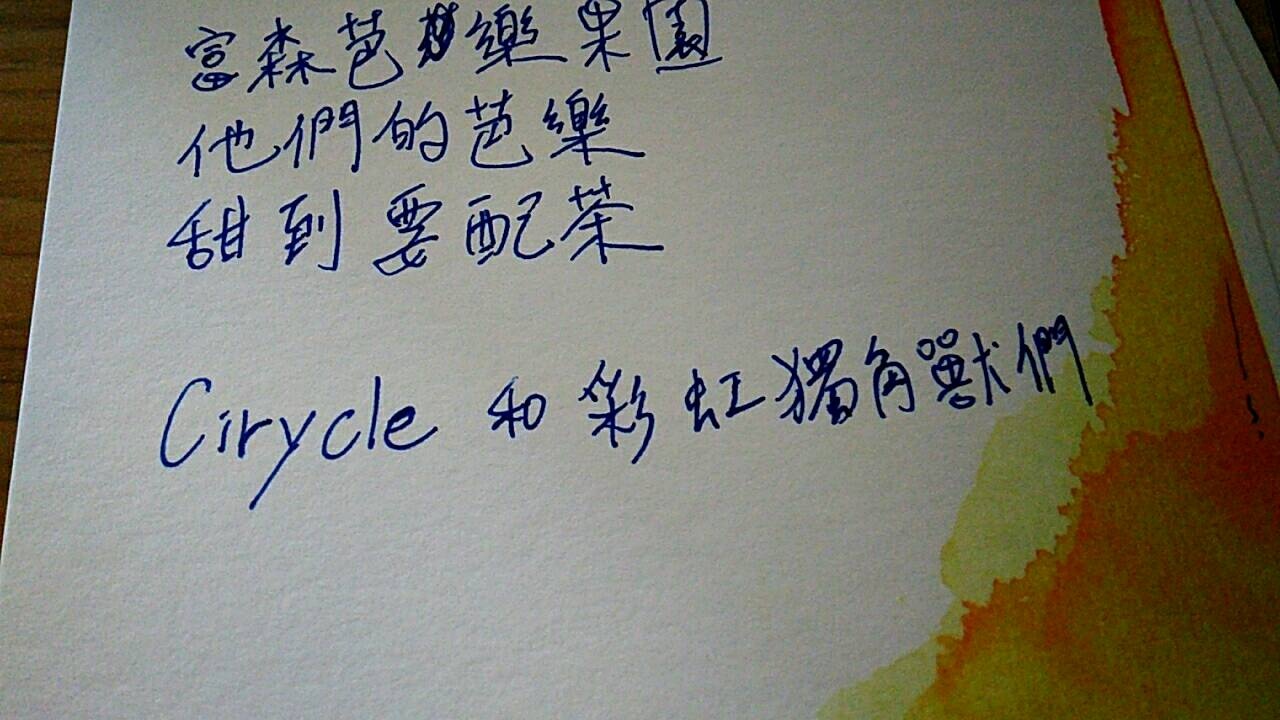 富森芭樂果園
他們的芭樂
甜到要配茶
Cirycle 和彩虹獨角獸們